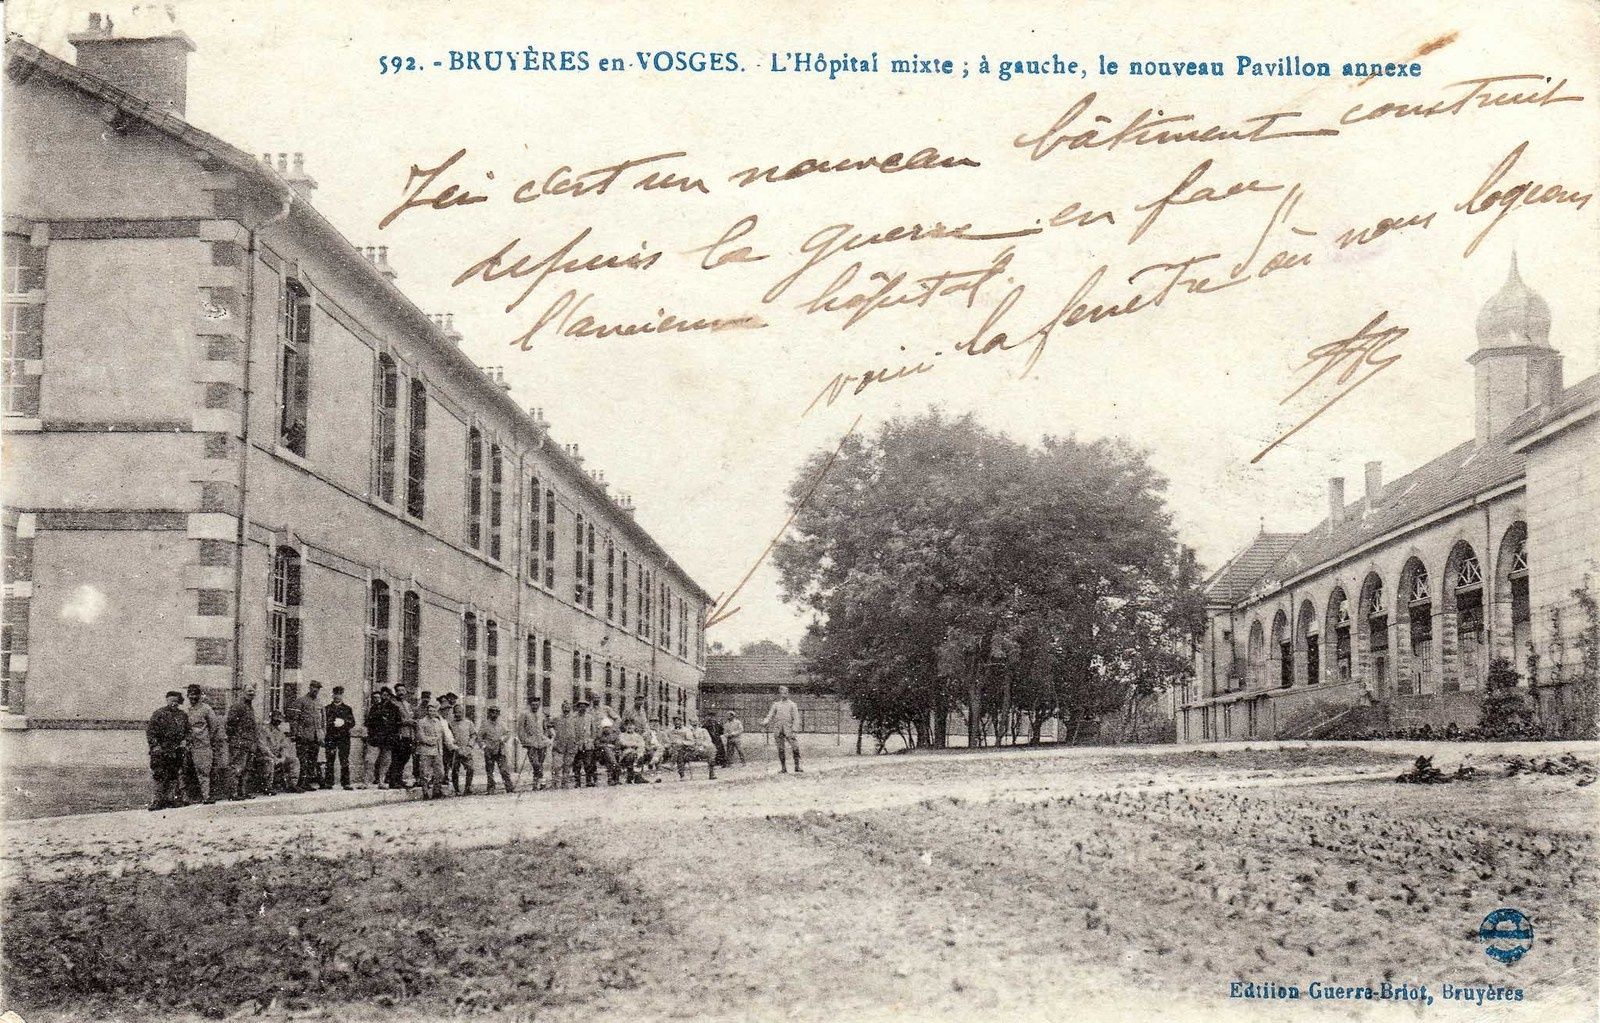 592. - BRUYÈRES en VOSGES. - L'Hôpital mixte ; à gauche, le nouveau Pavillon annexe
Ici c'est un nouveau bâtiment construit
depuis la guerre en face
l'ancien hôpital.
voici la fenêtre où nous logions
Edtiion Guerre-Briot, Bruyères